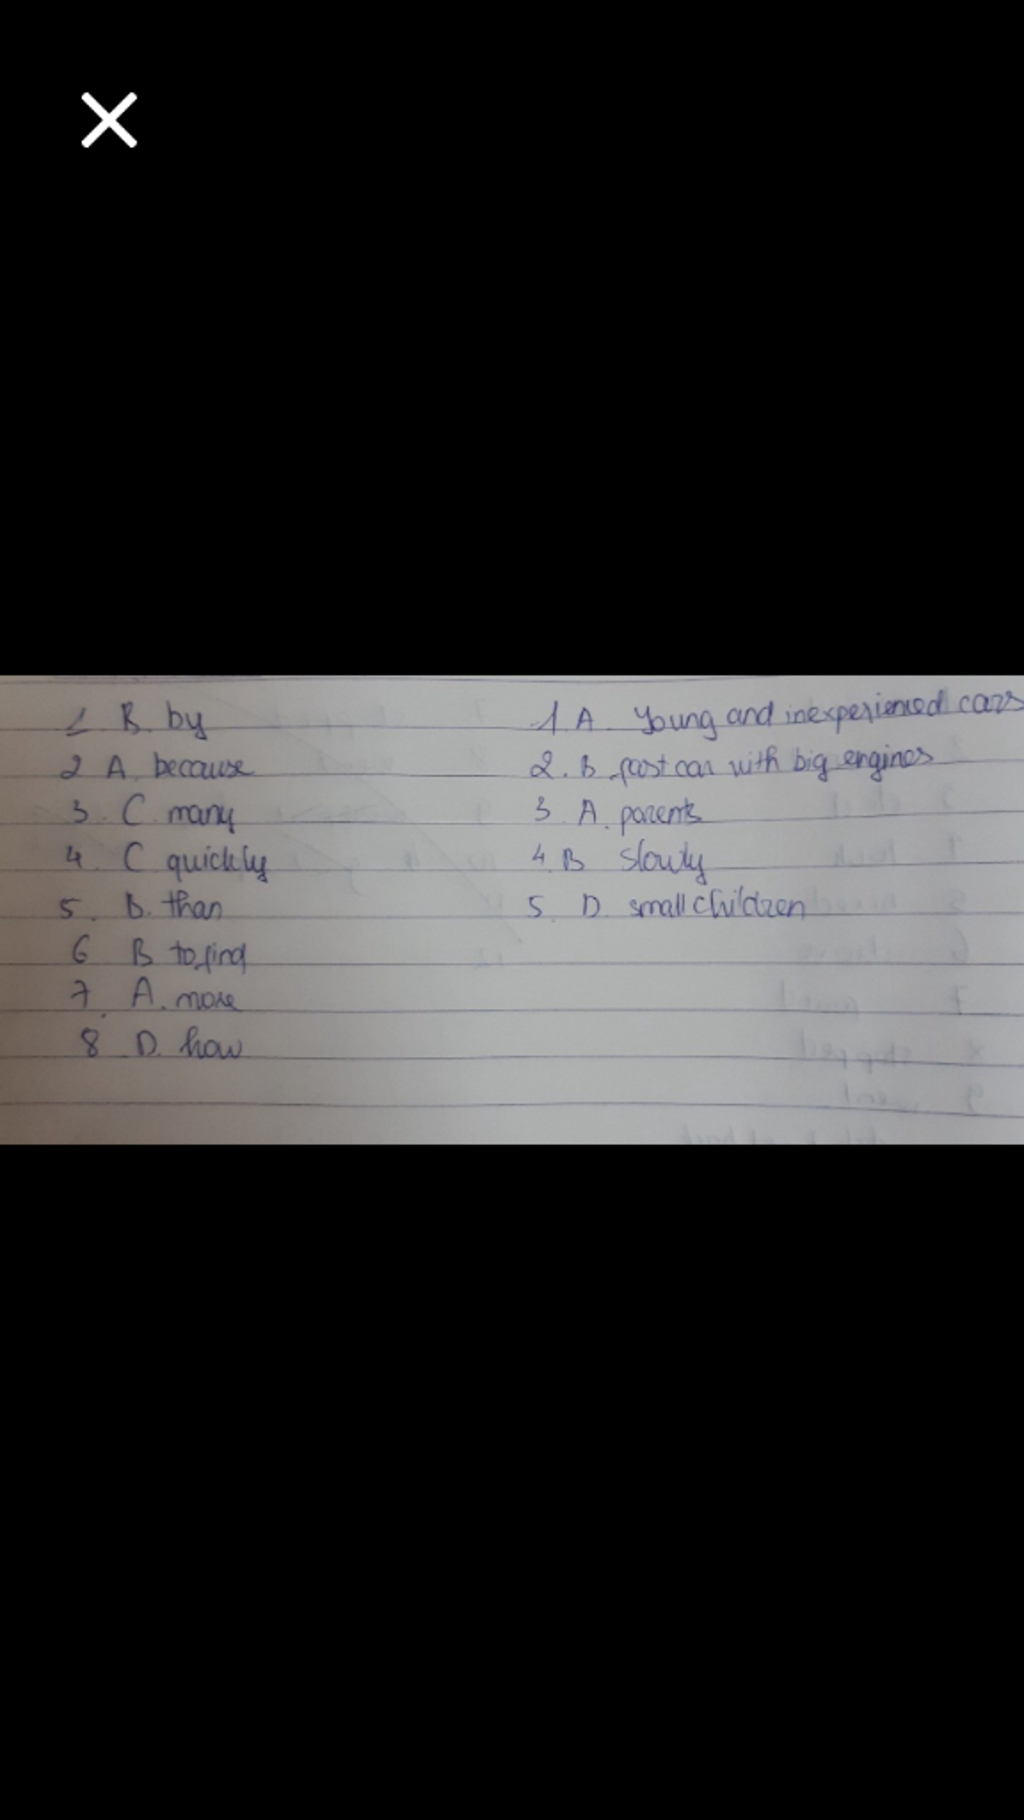 1 B. by
2 A. because
3. C. many
4. C quickly
5. B. than
6 B to find
7. A. more
8 D. how
1 A. Young and inexperienced cars
2. B. fast car with big engines
3 A. parents
4. B slowly
5. D. small children